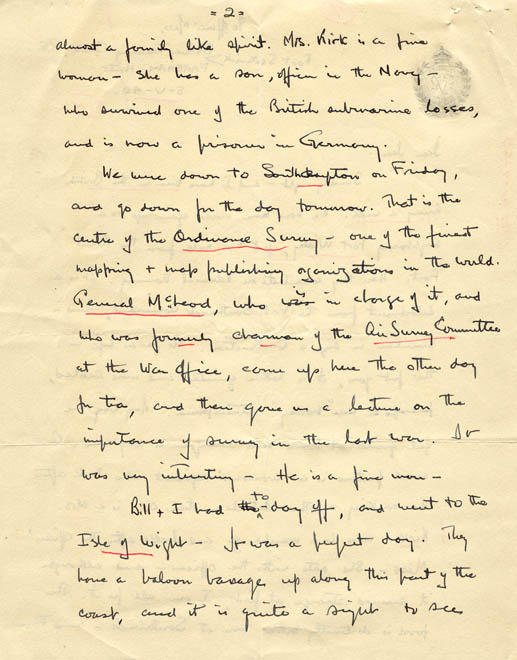 = 2 =
almost a family like spirit. Mrs. Kirk is a fine
woman – She has a son, officer in the Navy –
who survived one of the British submarine losses,
and is now a prisoner in Germany.
We were down to Southampton on Friday,
and go down for the day tomorrow. That is the
centre of the Ordinance Survey – one of the finest
mapping + map publishing organizations in the world.
General McLeod, who was is in charge of it, and
who was formerly chairman of the Air Survey Committee
at the War Office, came up here the other day
for tea, and then gave us a lecture on the
importance of survey in the last war. It
was very interesting – He is a fine man –
Bill + I had the to-day off, and went to the
Isle of Wight – It was a perfect day. They
have a baloon barrages up along this part of the
coast, and it is quite a sight to see